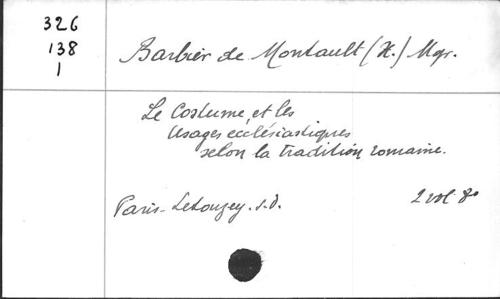 326
138
1
Barbier de Montault (X.) Mgr.
Le Costume et les
Usages ecclésiastiques
selon la tradition romaine.
Paris - Letouzey. s.d.
2 vol 8°